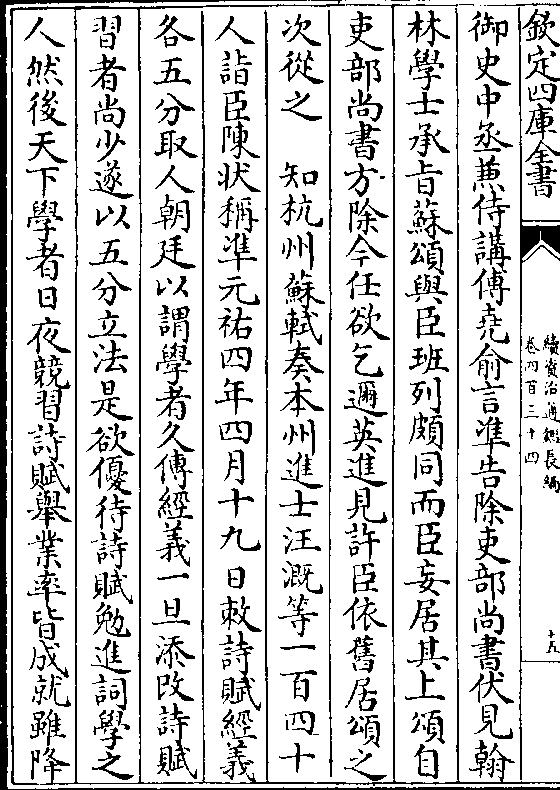 欽定四庫全書
續資治通鑑長編
卷四百三十四
十五
御史中丞兼侍講傅堯俞言準告除吏部尚書伏見翰
林學士承旨蘇頌與臣班列頗同而臣妄居其上頌自
吏部尚書方除今任欲乞邇英進見許臣依舊居頌之
次從之　知杭州蘇軾奏本州進士汪溉等一百四十
人詣臣陳狀稱準元祐四年四月十九日敕詩賦經義
各五分取人朝廷以謂學者久傳經義一旦添改詩賦
習者尚少遂以五分立法是欲優待詩賦勉進詞學之
人然後天下學者日夜競習詩賦舉業率皆成就雖降